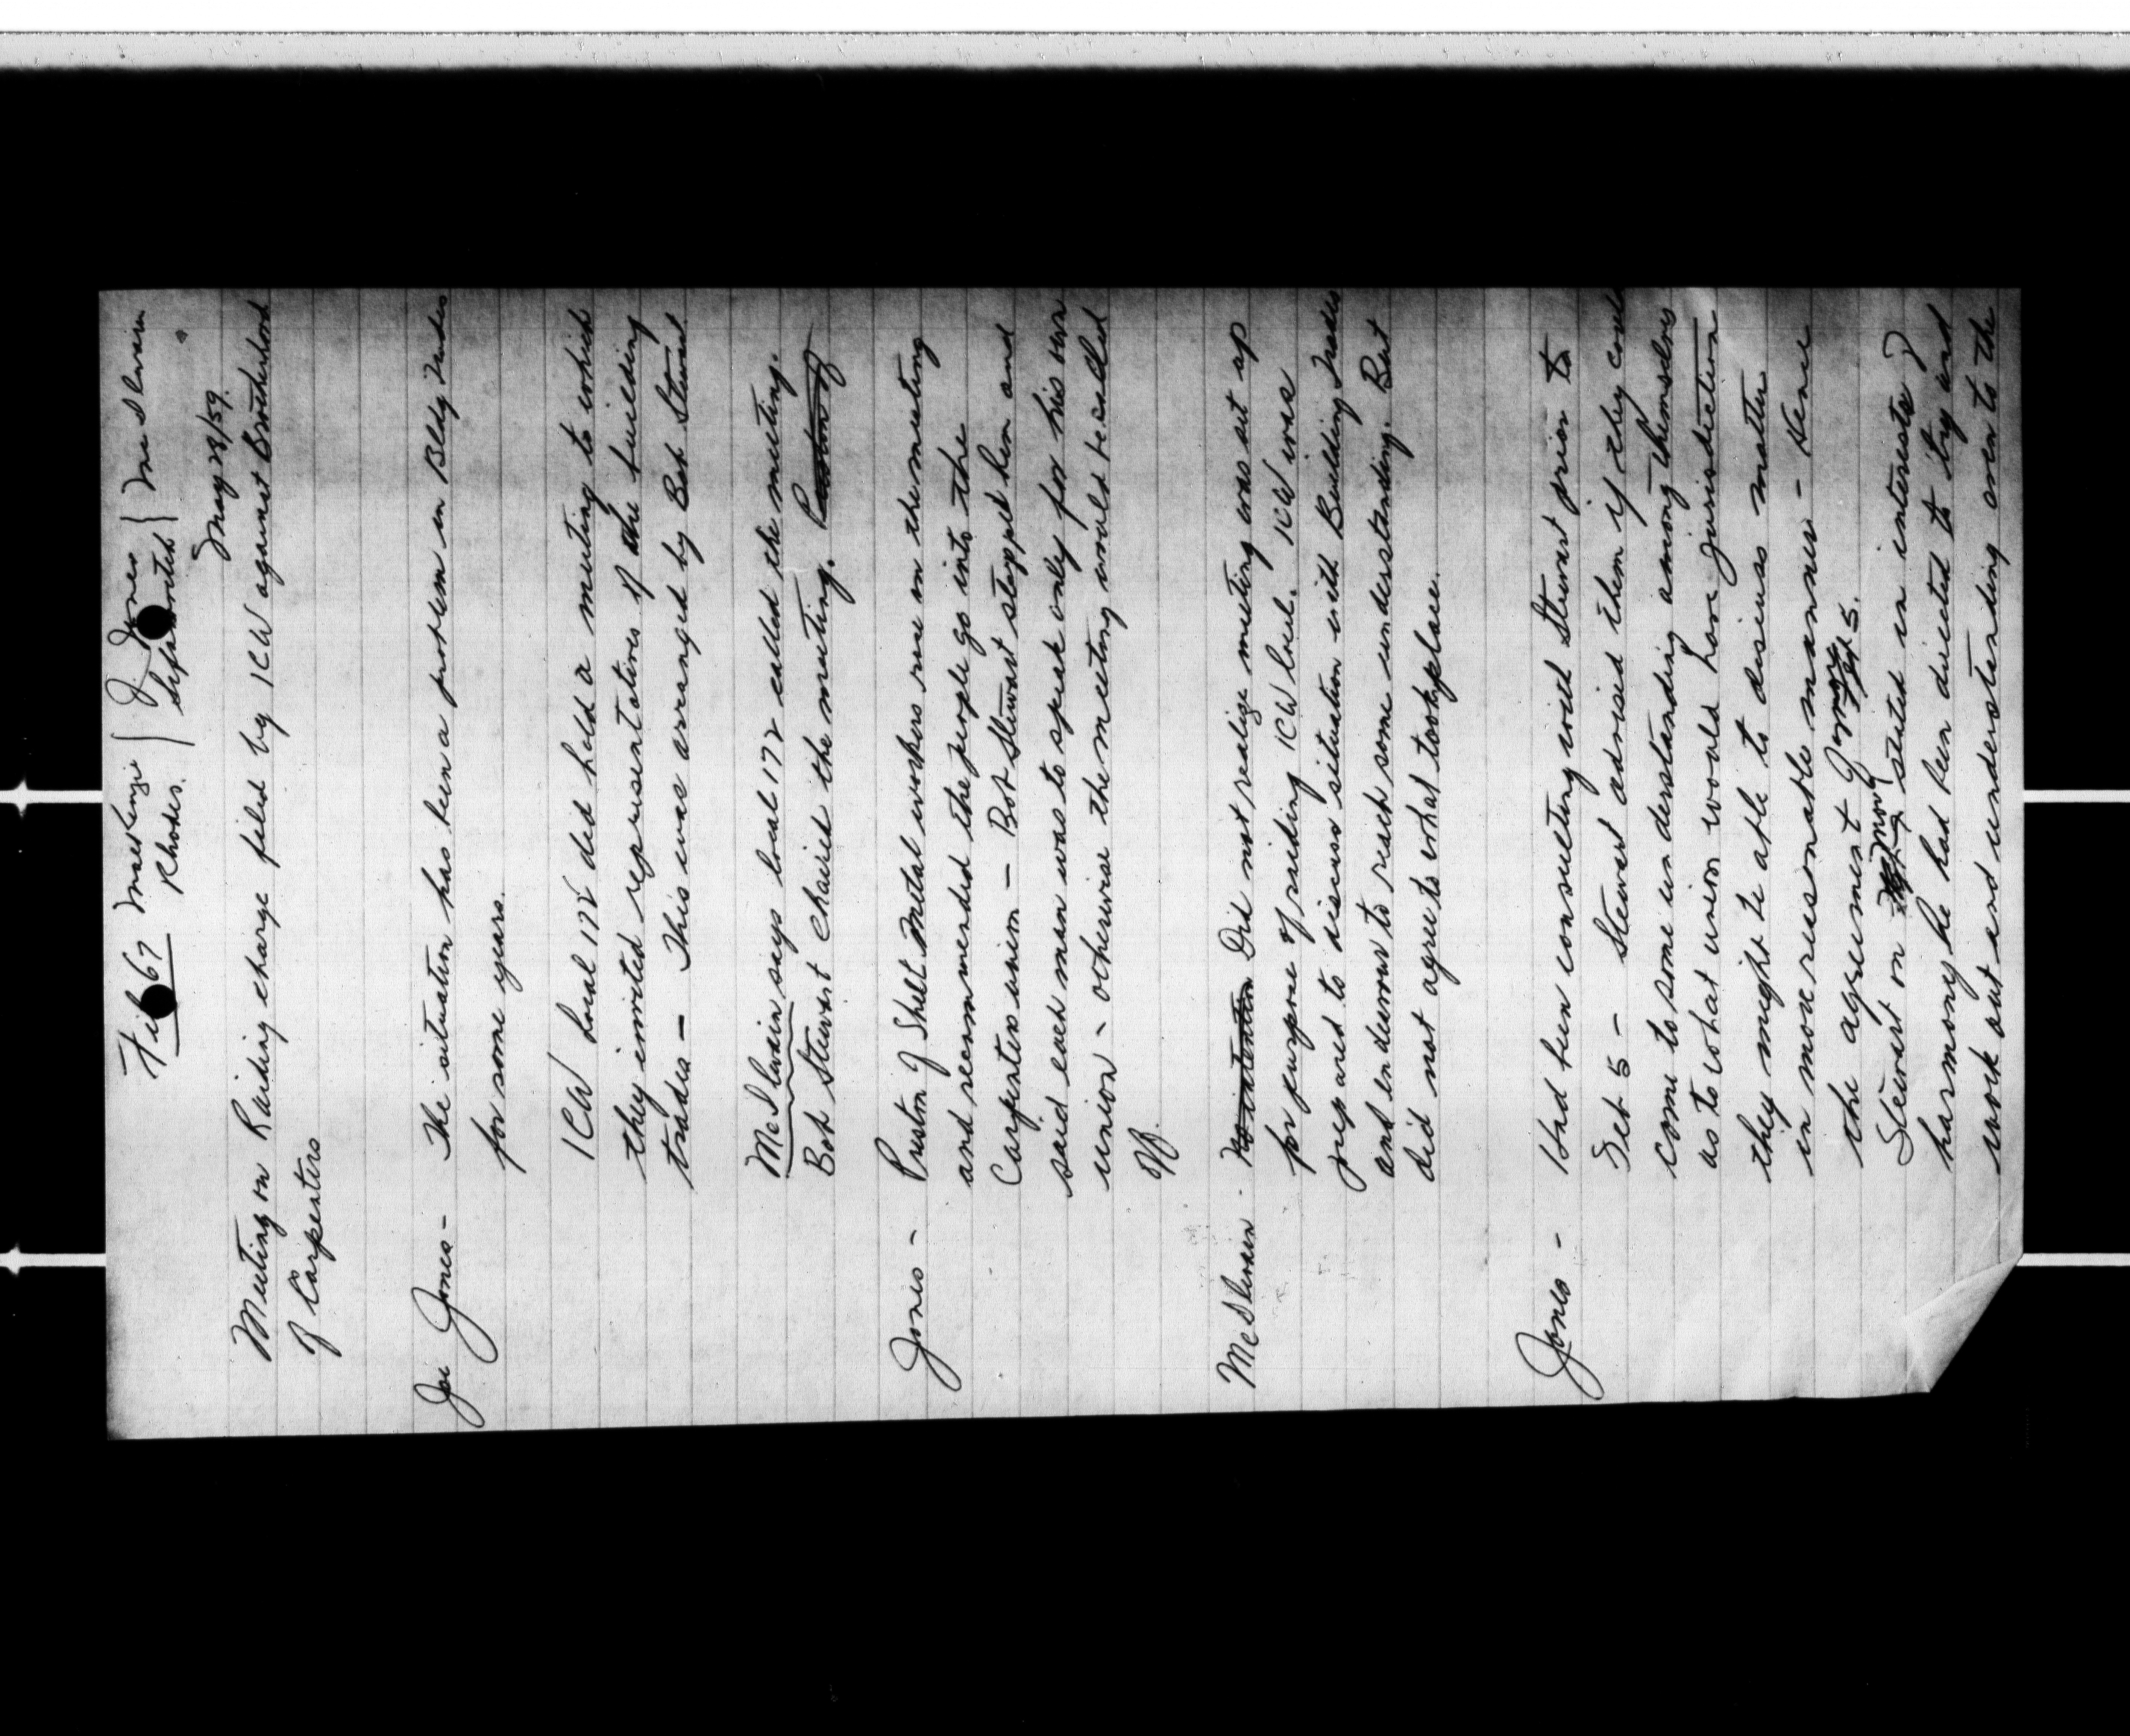 File 67 MacKenzie J Jones McIlvain
Rhodes.
May 28/59.
Meeting on Raiding charge filed by ICW against Brotherhood
of Carpenters
Joe Jones - The situation has been a problem in Bldg Trades
for some years.
ICW Local 172 did hold a meeting to which
they invited representatives of the building
trades - This was arranged by Bob Stewart
McIlvain says local 172 called the meeting.
Bob Stewart chaired the meeting.
Jones - Preston of Sheet Metal workers rose in the meeting
and recommended the people go into the
Carpenters union - Bob Stewart stopped him and
said each man was to speak only for his own
union - otherwise the meeting would be called
off.
McIlvain - No intention Did not realize meeting was set up
for purpose of raiding ICW local. ICW was
prepared to discuss situation with Building Trades
and endeavour to reach some understanding. But
did not agree to what took place.
Jones - Had been consulting with Stewart prior to
Feb 5 - Stewart advised them if they could
come to some understanding among themselves
as to what union would have jurisdiction
they might be able to discuss matter
in more reasonable manner - Hence
the agreement of
Stewart on stated in interests of
harmony he had been directed to try and
work out and understanding even to the